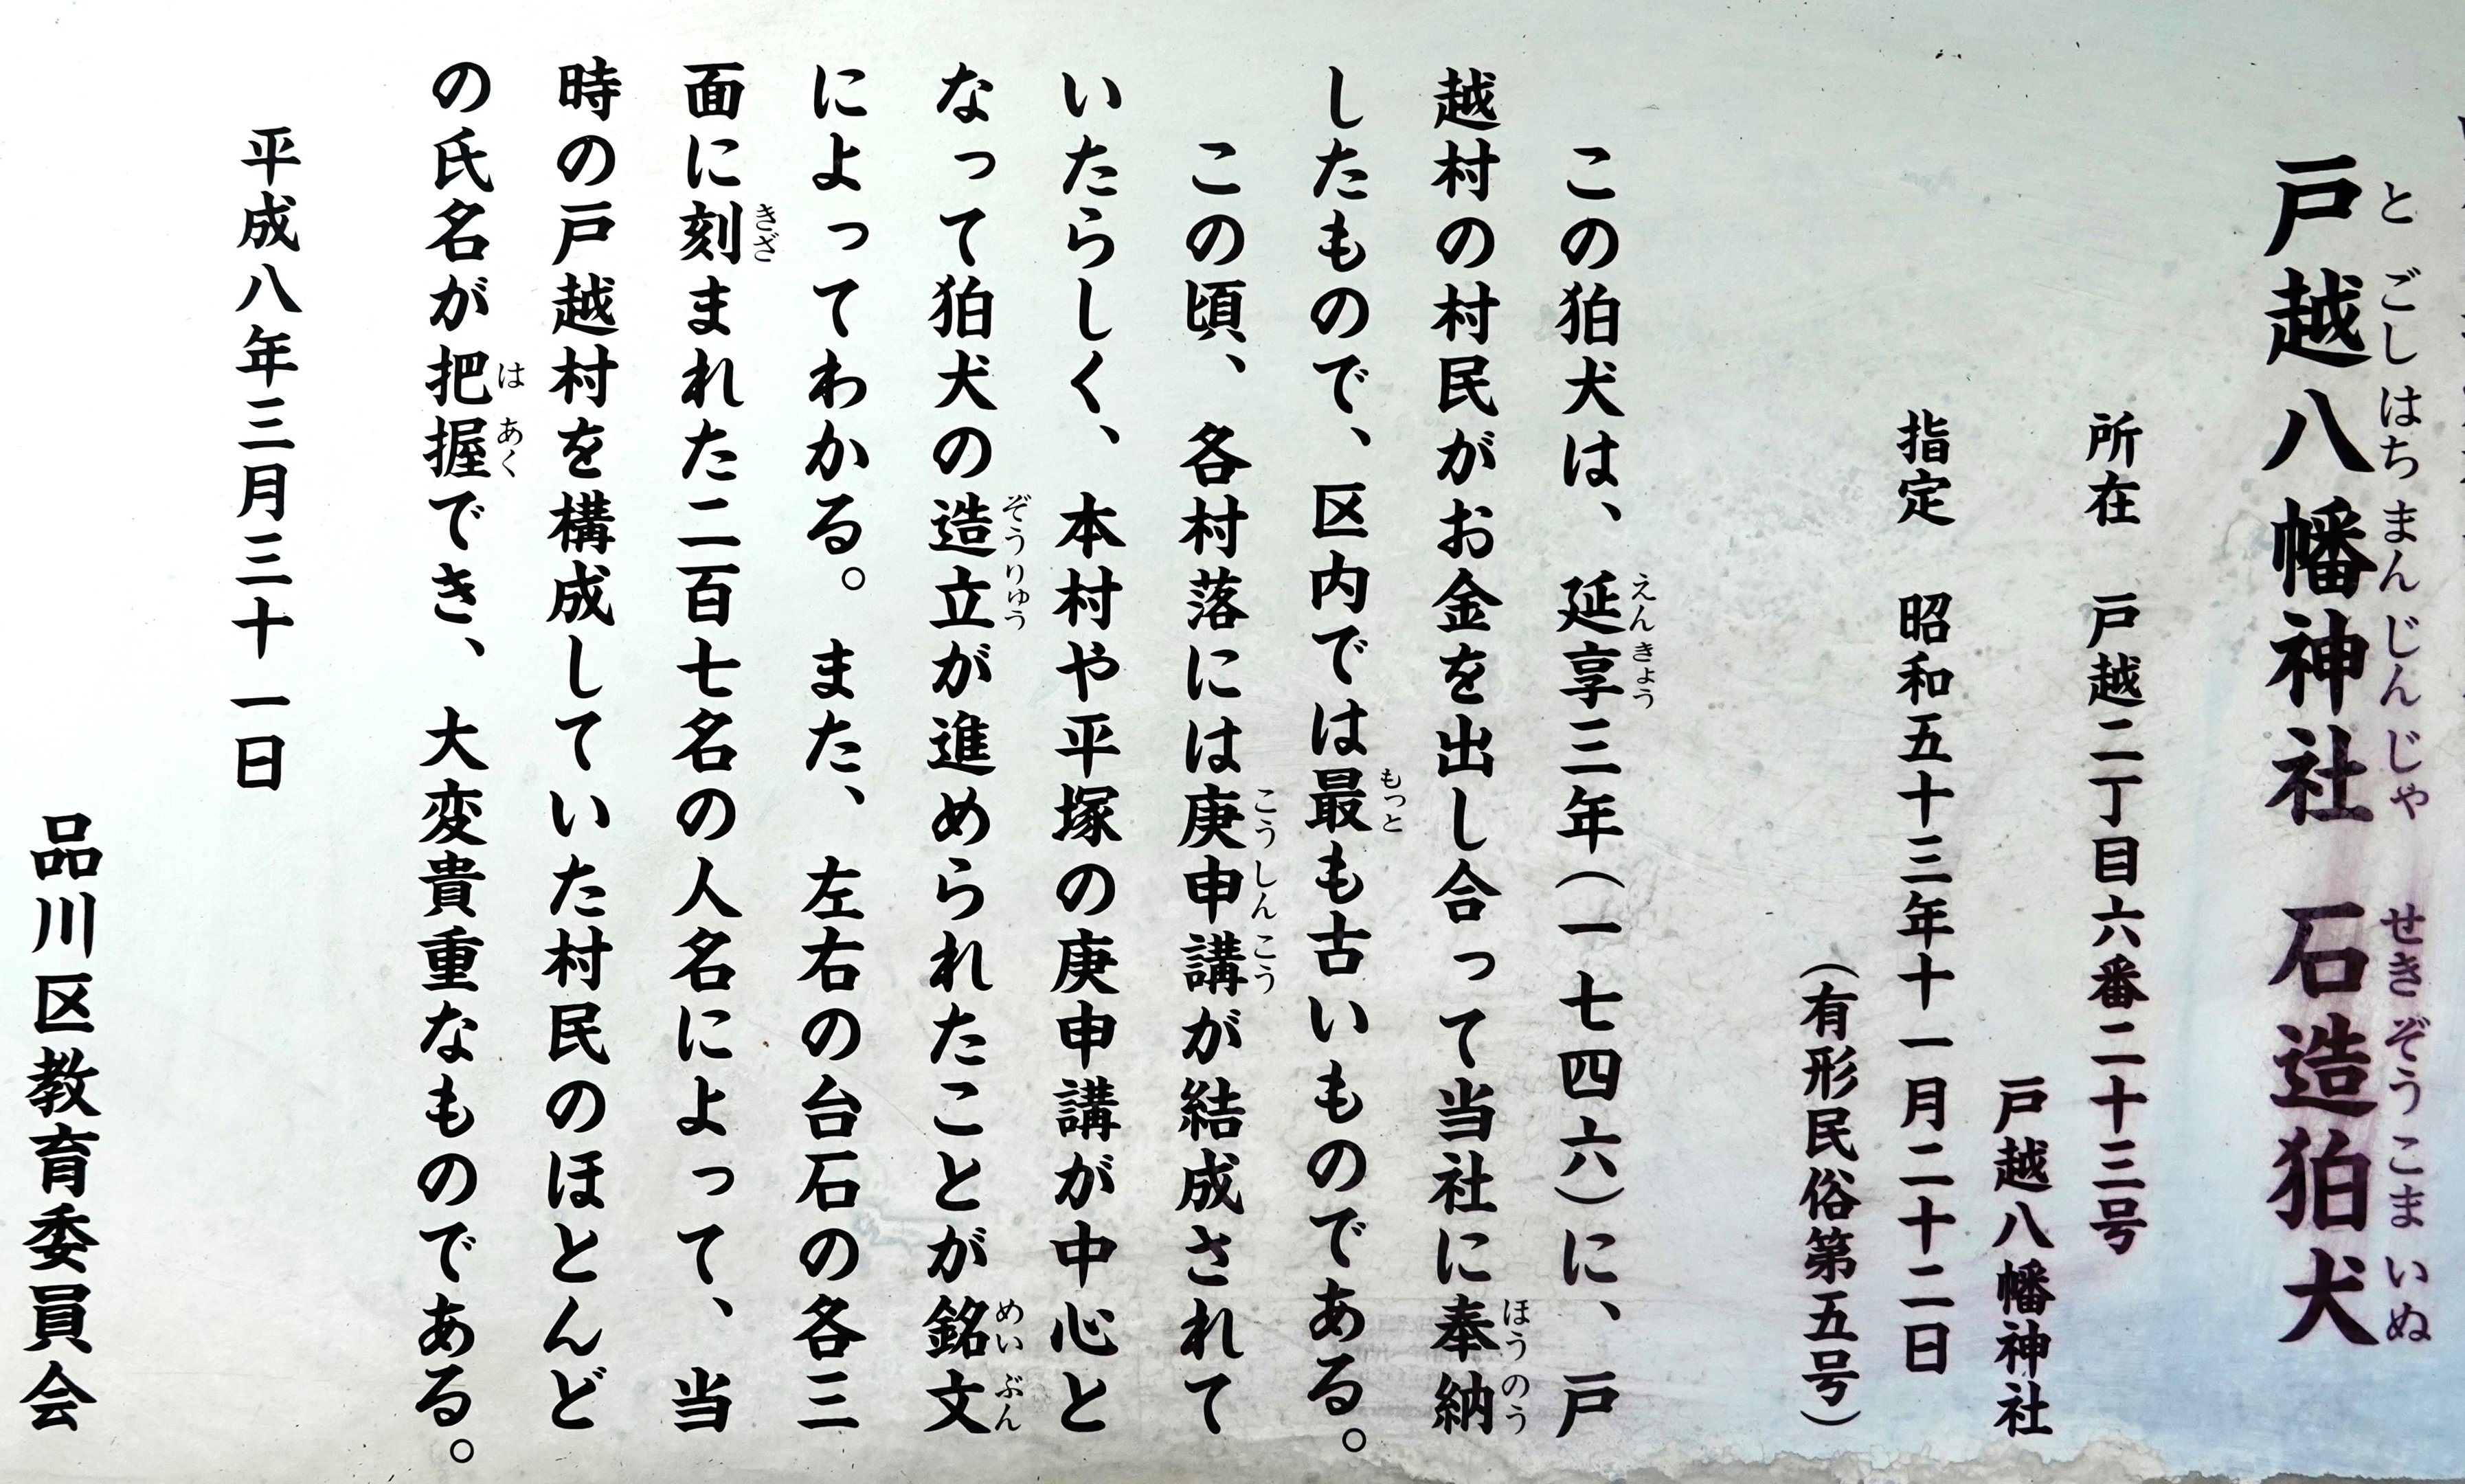 戸越八幡神社 石造狛犬
とごしはちまんじんじゃ せきぞうこまいぬ
所在 戸越二丁目六番二十三号
戸越八幡神社
指定 昭和五十三年十一月二十二日
（有形民俗第五号）
この狛犬は、延享三年（一七四六）に、戸
えんきょう
越村の村民がお金を出し合って当社に奉納
ほうのう
したもので、区内では最も古いものである。
もっと
この頃、各村落には庚申講が結成されて
こうしんこう
いたらしく、本村や平塚の庚申講が中心と
なって狛犬の造立が進められたことが銘文
ぞうりゅう めいぶん
によってわかる。また、左右の台石の各三
面に刻まれた二百七名の人名によって、当
きざ
時の戸越村を構成していた村民のほとんど
の氏名が把握でき、大変貴重なものである。
はあく
平成八年三月三十一日
品川区教育委員会